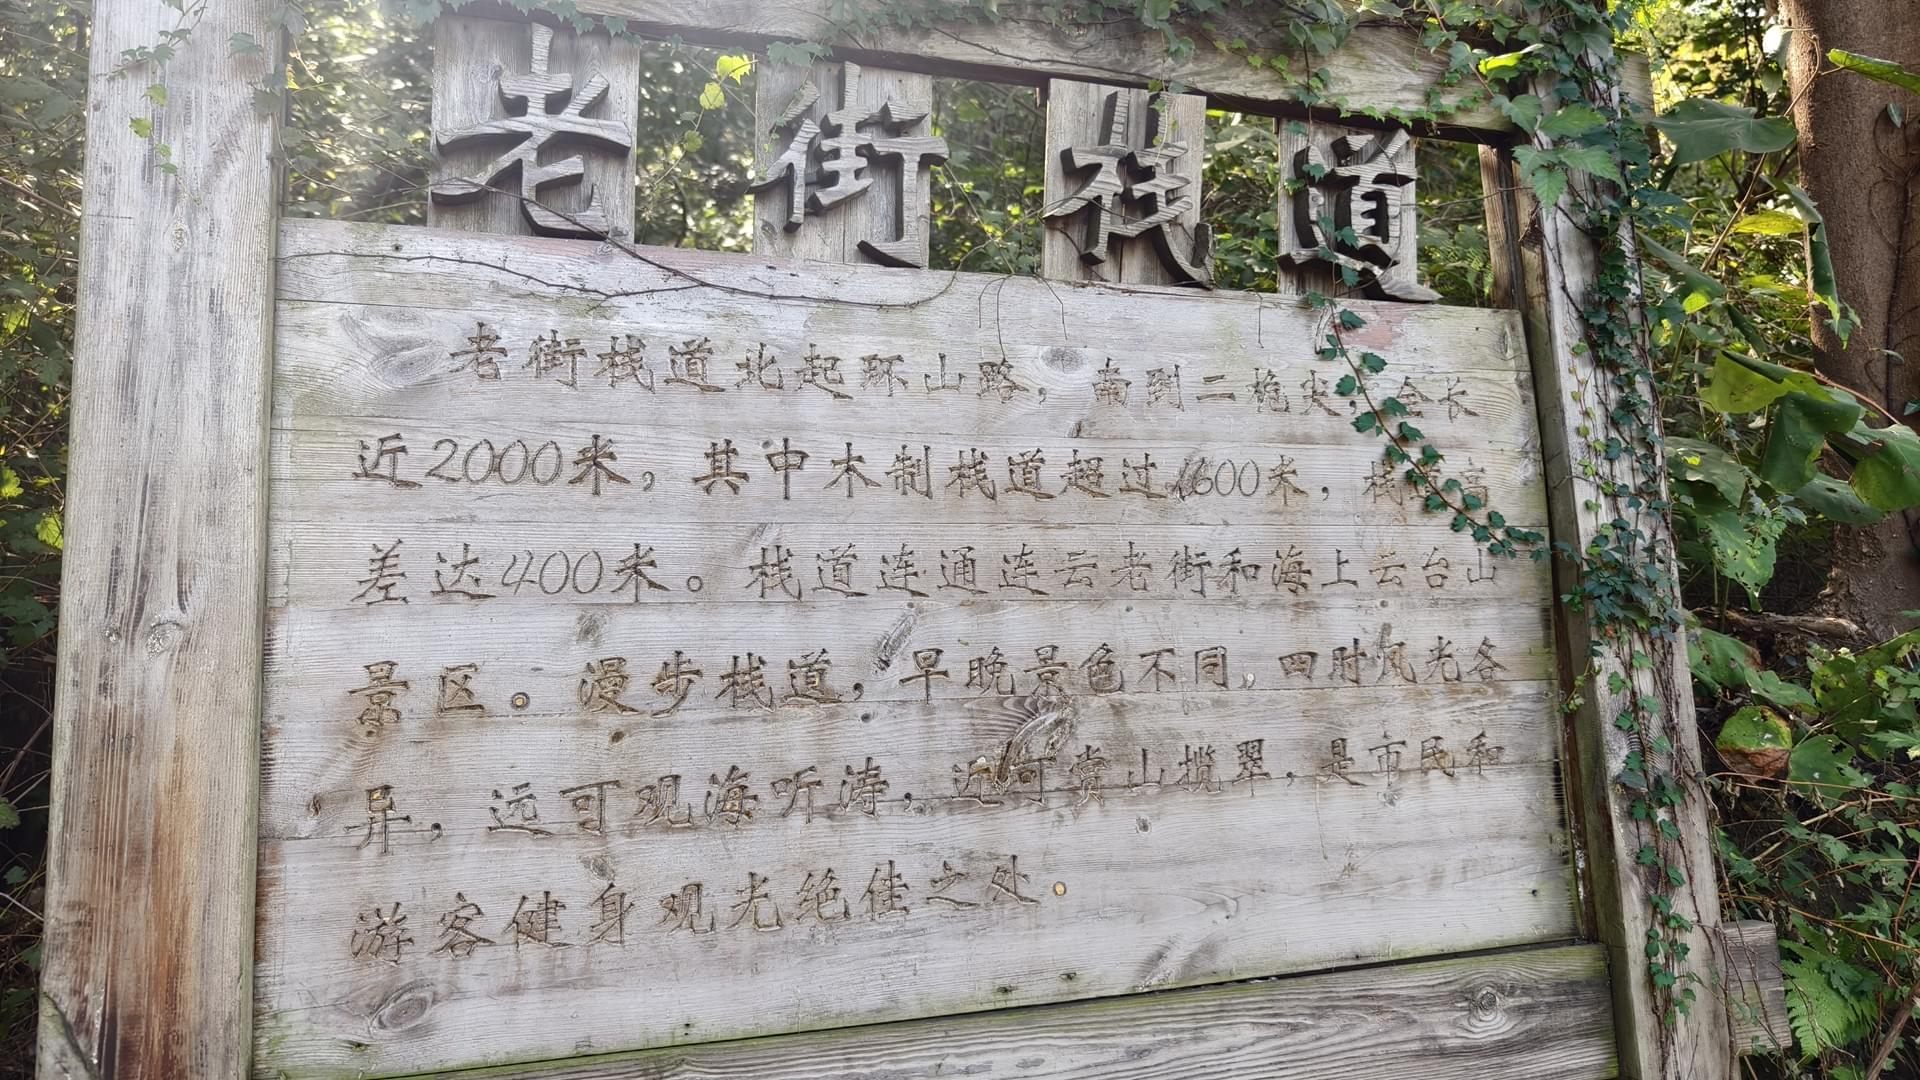 老街栈道
老街栈道北起环山路，南到二桅尖，全长
近2000米，其中木制栈道超过1600米，栈道高
差达400米。栈道连通连云老街和海上云台山
景区。漫步栈道，早晚景色不同，四时风光各
异，远可观海听涛，近可赏山揽翠，是市民和
游客健身观光绝佳之处。